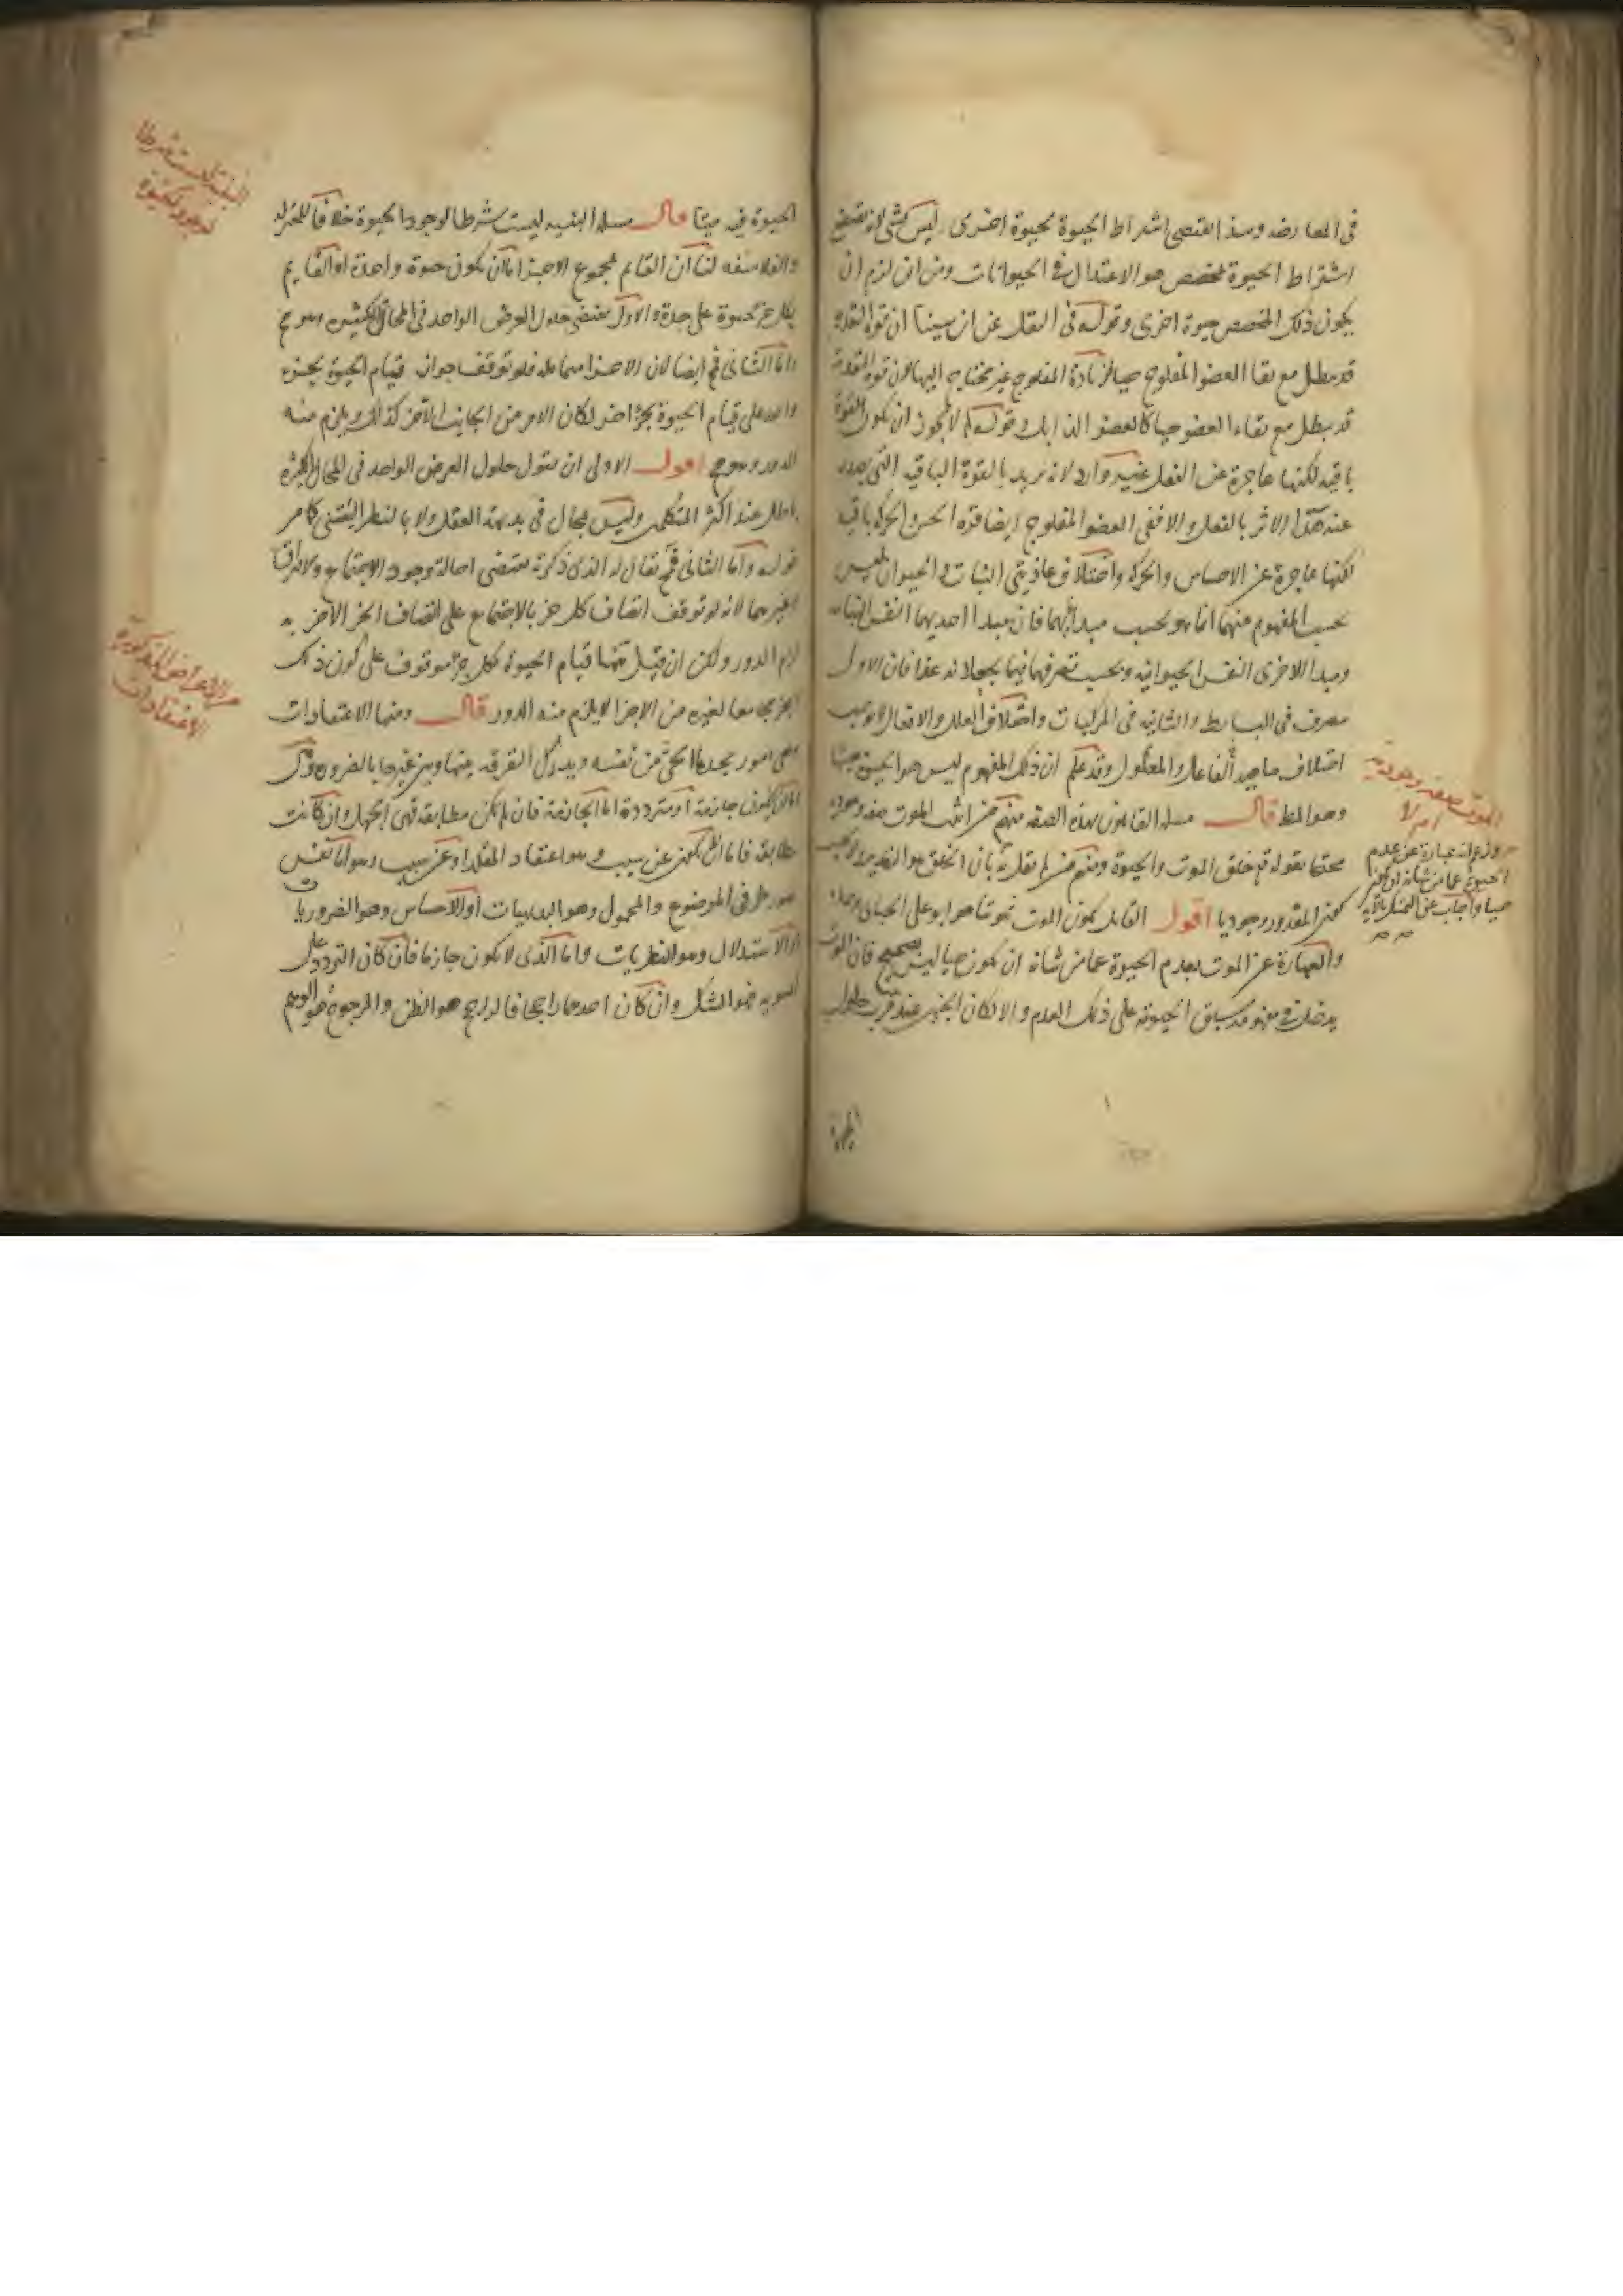 في المعارضه وهذا اقتضى اشتراط الحيوة بحيوة اخرى ليس بشئ لانه يقتضي
اشتراط الحيوة بمخصص هو الاعتدال في الحيوانات ومن اين لزم ان
يكون ذلك المخصص حيوة اخرى وقوله في النقل عن ابن سينا ان قوة التغذيه
قد تبطل مع بقا العضو المفلوج حيا فزيادة المفلوج غير محتاج اليها لان قوة التغذية
قد تبطل مع بقاء العضو حيا كالعضو الذابل وقوله لم لا يجوز ان يكون القوة
باقيه لكنها عاجزة عن الفعل غير وارد لانه يريد بالقوة الباقيه التي يصدر
عنه هذا الاثر بالفعل والا ففي العضو المفلوج ايضا قوة الحس والحركه باقيه
لكنها عاجزة عن الاحساس والحركه واختلاف غاذيتي النبات والحيوان ليس
بحسب المفهوم منهما انما هو بحسب مبدأيهما فان مبدا احديهما النفس النباتيه
ومبدا الاخرى النفس الحيوانيه وبحسب تصرفهما فيما يجعلانه غذا فان الاولى
تتصرف في البسايط والثانيه في المركبات واختلاف العلل والافعال لا يوجب
اختلاف ماهيه الفاعل والمعلول وقد علم ان ذلك المفهوم ليس هو الحيوة
وهو المط قال مسله القايلون بهذه الصفه منهم من اثبت الموت صفه وجوديه
محتجا بقوله تع خلق الموت والحيوة ومنهم من لم يقل به بان الخلق هو التقدير ولا يجب
كون المقدور وجوديا اقول القايل بكون الموت ثبوتيا هو ابو علي الجبائي
والعبارة عن الموت بعدم الحيوة عما من شانه ان يكون حيا ليس بصحيح فان الموت
يدخل في مفهومه سبق الحيوة على ذلك العدم والا لكان الجنين عند قرب حلول
الموت صفة وجودية
ام لا
وزعم انه عبارة عن عدم
الحيوة عما من شانه ان يكون
حيا واجاب عن التمسك بالآية
الحيوة فيه ميتا قال مسله البنيه ليست شرطا لوجود الحيوة خلافا للمعتزله
والفلاسفه لنا ان القايم بمجموع الاجزا اما ان يكون حيوة واحدة او القايم
بكل جزء حيوة على حدة والاول يقتضي حلول العرض الواحد في المحال الكثيره وهو مح
واما الثاني فمح ايضا لان الاجزا متماثله فلو توقف جواز قيام الحيوة بجزء
واحد على قيام الحيوة بجزء اخر لكان الامر من الجانب الآخر كذلك ويلزم منه
الدور وهو مح اقول الاولى ان يقول حلول العرض الواحد في المحال الكثيره
باطل عند اكثر المتكلمين وليس بمحال في بديهة العقل ولا بالنظر اليقيني كما مر
قوله واما الثاني فمح يقال له الذي ذكرته يقتضي احالة وجود الاجتماع والافتراق
وغيرهما لانه لو توقف اتصاف كل جزء بالاجتماع على اتصاف الجزء الاخر به
لزم الدور ولكن ان قيل ههنا قيام الحيوة بكل جزء موقوف على كون ذلك
الجزء مجامعا لغيره من الاجزا لا يلزم منه الدور قال ومنها الاعتقادات
وهي امور يجدها الحي من نفسه ويدرك التفرقه بينها وبين غيرها بالضروره وتلك
اما ان يكون جازمة او مترددة اما الجازمة فان لم يكن مطابقه فهي الجهل وان كانت
مطابقه فاما ان لا يكون عن سبب وهو اعتقاد المقلد او عن سبب وهو اما نفس
تصور طرفي الموضوع والمحمول وهو البديهيات او الاحساس وهو الضروريات
او الاستدلال وهو النظريات واما الذي لا يكون جازما فان كان التردد على
السويه فهو الشك وان كان احدهما راجحا فالراجح هو الظن والمرجوح هو الوهم
البنية ليست شرطا
لوجود الحيوة
من الاعراض المذكورة
الاعتقادات